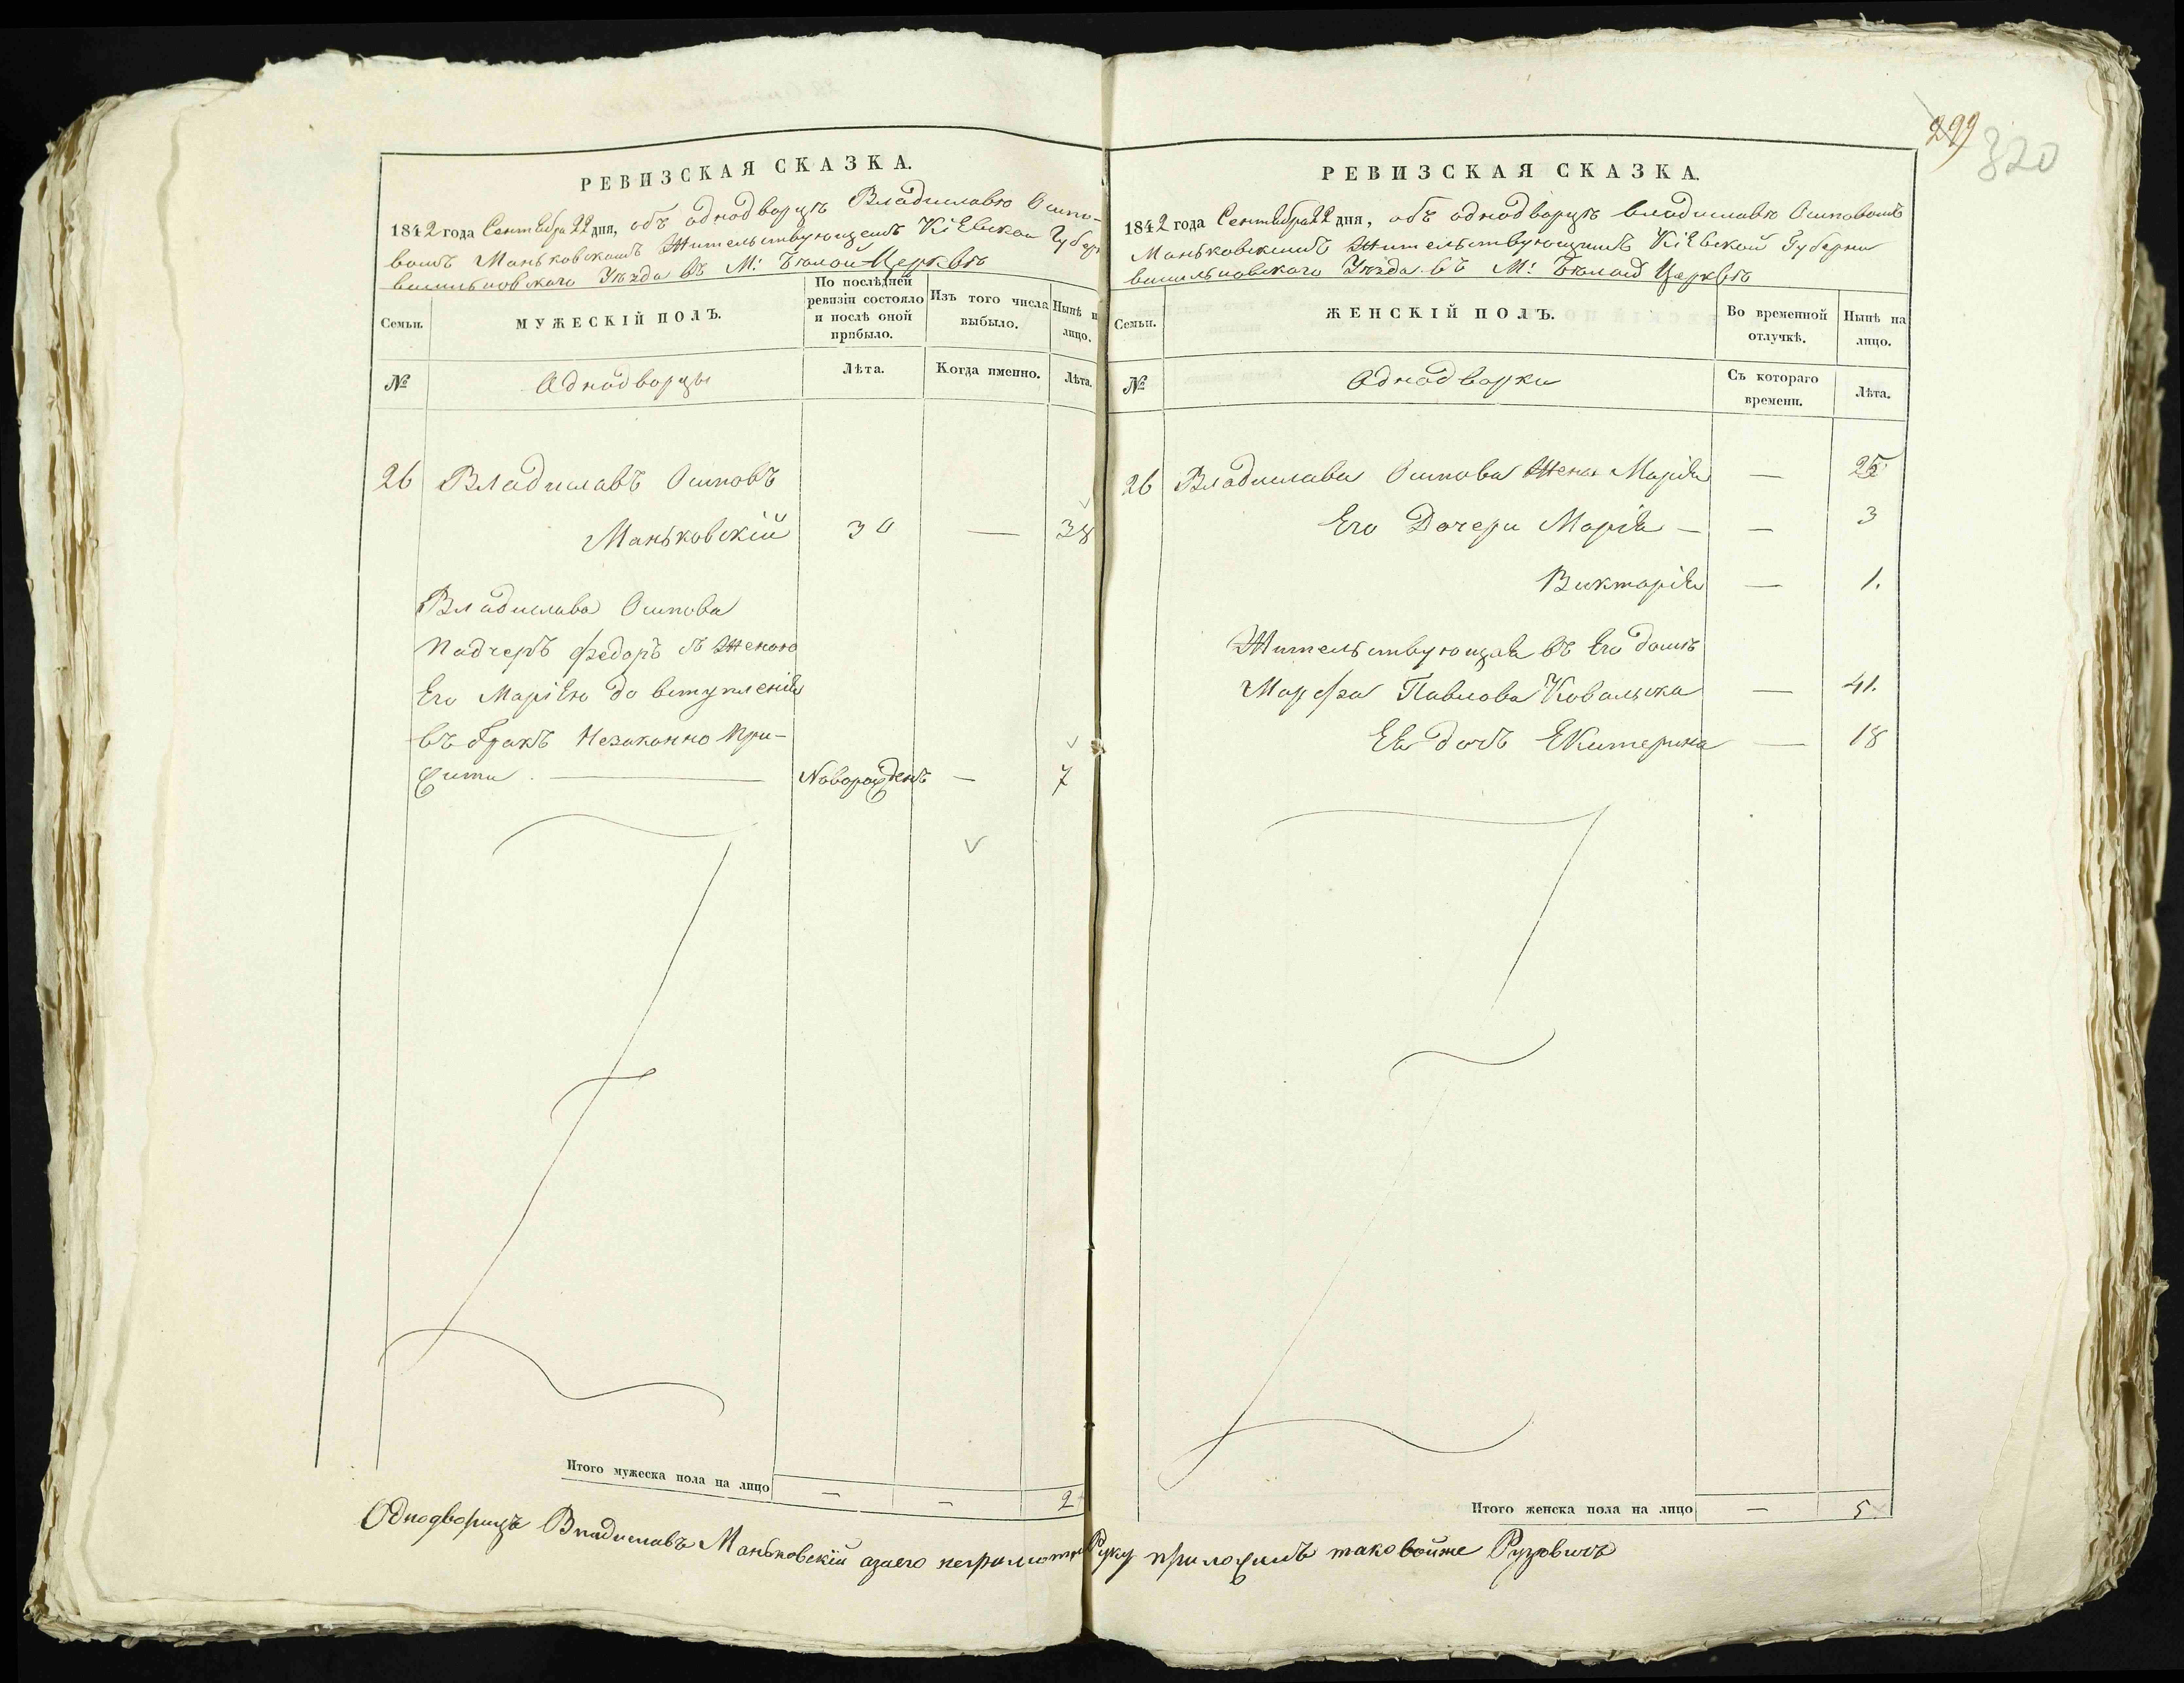 299
320
РЕВИЗСКАЯ СКАЗКА.
1842 года Сентября 22 дня, объ однодворцѣ Владиславѣ Осипо-
вомъ Маньковскомъ Жительствующемъ Кіевской Губер
васильковского Уѣзда въ М: Бѣлой Церквѣ
Семьи.
МУЖЕСКІЙ ПОЛЪ.
По послѣдней ревизіи состояло и послѣ оной прибыло.
Изъ того числа выбыло.
Нынѣ н лицо.
№
Однодворцы
Лѣта.
Когда именно.
Лѣта.
26 Владиславъ Осиповъ
Маньковскій 30 — 38
Владислава Осипова
Падчеръ Федоръ съ Женою
Его Маріею до вступленія
въ бракъ Незаконно При-
житы. — Новорожденъ — 7
Итого мужеска пола на лицо — — 2
РЕВИЗСКАЯ СКАЗКА.
1842 года Сентября 22 дня, объ однодворцѣ владиславѣ Осиповомъ
Маньковскимъ Жительствующимъ Кіевской Губерни
васильковского Уѣзда въ М: Бѣлой Церквѣ
Семьи.
ЖЕНСКІЙ ПОЛЪ.
Во временной отлучкѣ.
Нынѣ на лицо.
№
Однодворки
Съ котораго времени.
Лѣта.
26 Владислава Осипова Жена Марія — 25
Его Дочери Марія — — 3
Викторія — 1.
Жительствующая въ Его домѣ
Марфа Павлова Ковальска — 41.
Ея дочь Екатерина — 18
Итого женска пола на лицо — 5
Однодворецъ Владиславъ Маньковскій азаего неграмотн Руку приложилъ таковойже Рузовичъ